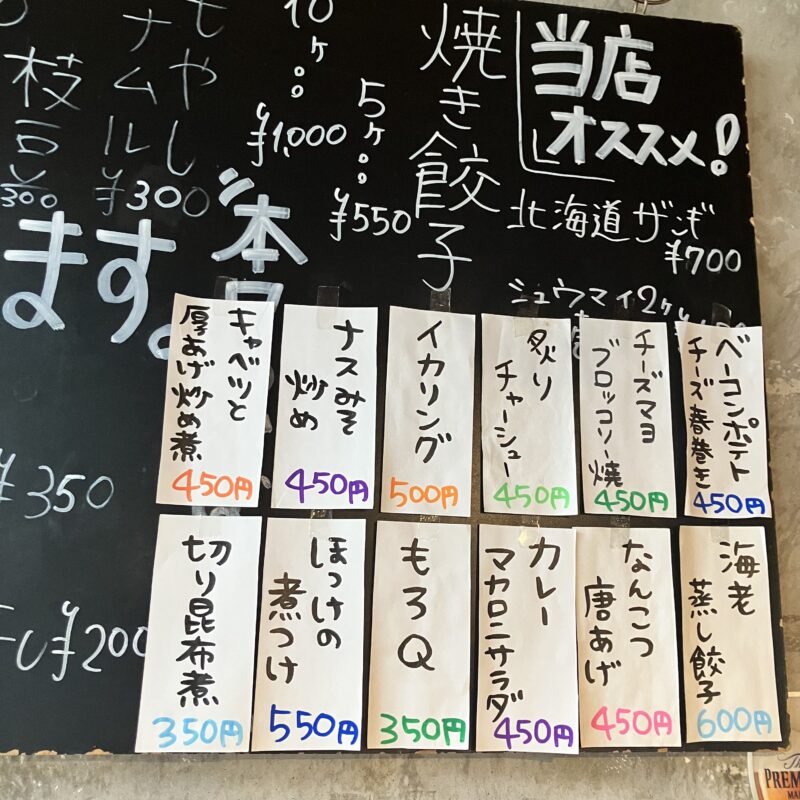 当店
オススメ!
北海道ザンギ
¥700
シュウマイ2ケ
焼き餃子
5ケ
¥550
10ケ
¥1,000
もやし
ナムル
¥300
枝豆
300
ます。
本日
¥350
¥200
ベーコンポテト
チーズ春巻き
450円
チーズマヨ
ブロッコリー焼
450円
炙り
チャーシュー
450円
イカリング
500円
ナスみそ
炒め
450円
キャベツと
厚あげ炒め煮
450円
海老
蒸し餃子
600円
なんこつ
唐あげ
450円
カレー
マカロニサラダ
450円
もろQ
350円
ほっけの
煮つけ
550円
切り昆布煮
350円
The
PREM